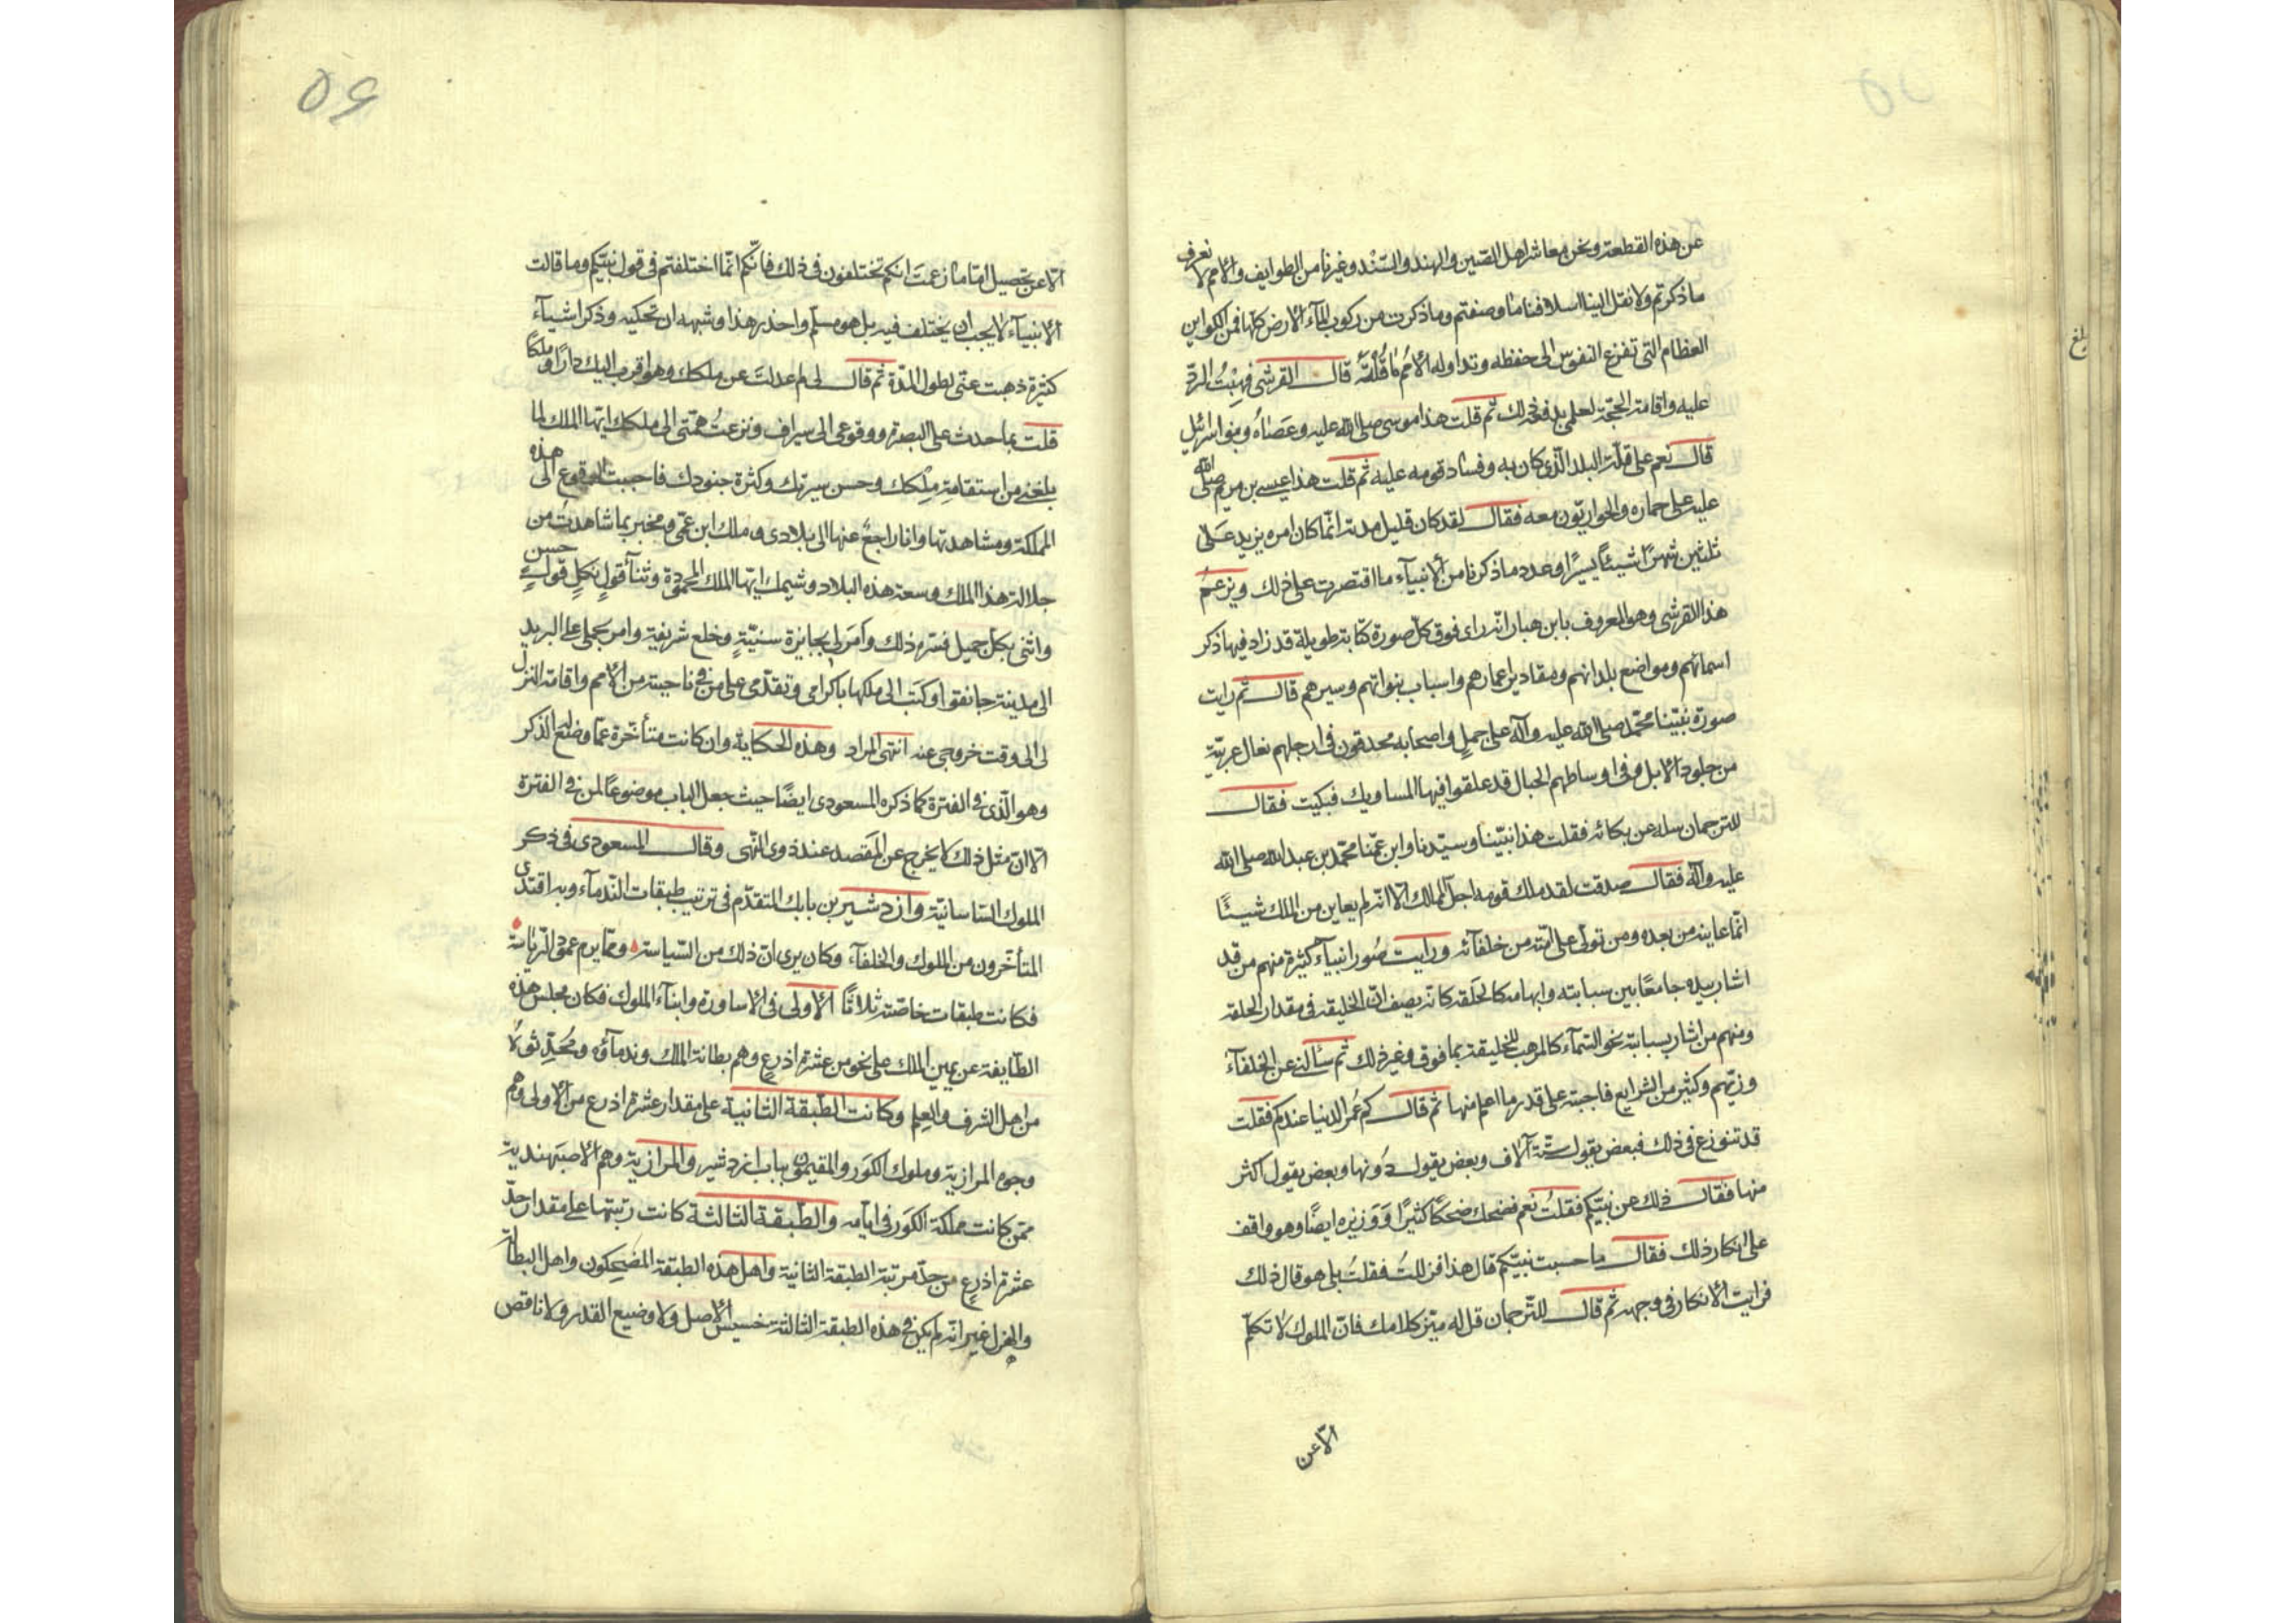 عن هذه القطعة ونحن معاشر اهل الصين والهند والسّند وغيرنا من الطوايف والامم لا نعرف
ما ذكرتم ولا نقل الينا اسلافنا ما وصفتم وما ذكرت من ركوب المآء الارض كلّها فمن الكواين
العظام التى تفزع النفوس الى حفظه وتداوله الأمم ناقلة قال القرشى فهبتُ الردّ
عليه واقامة الحجّة لعلمى بدفعه ذلك ثم قلت هذا موسى صلى الله عليه وعصاه وبنو اسرائيل
قال نعم على قلّة البلد الّذى كان به وفساد قومه عليه ثم قلت هذا عيسى بن مريم صلى الله
عليه على حماره والحواريّون معه فقال لقد كان قليل مدته انّما كان امره يزيد على
ثلثين شهرًا شيئًا يسيرًا وعدد ما ذكرنا من الأنبيآء ما اقتصرت على ذلك ويزعم
هذا القرشى وهو المعروف بابن هبار انّه راى فوق كلّ صورة كتابة طويلة قد زاد فيها ذكر
اسمائهم ومواضع بلدانهم ومقادير اعمارهم واسباب نبواتهم وسيرهم قال ثم رايت
صورة نبيّنا محمّد صلى الله عليه وآله على جمل واصحابه محدقون فى ارجلهم نعال عربيّة
من جلود الابل وفى اوساطهم الحبال قد علقوا فيها المساويك فبكيت فقال
للترجمان سله عن بكائه فقلت هذا نبيّنا وسيّدنا وابن عمّنا محمّد بن عبد الله صلى الله
عليه وآله فقال صدقت لقد ملك قومه اجلّ الممالك الّا انّه لم يعاين من الملك شيئًا
انّما عاينه من بعده ومن تولّى على امّته من خلفآئه ورايت صُور انبيآء كثيرة منهم من قد
اشار بيده جامعًا بين سبابته وابهامه كالحلقه كانّه يصف انّ الخليقة فى مقدار الحلقة
ومنهم من اشار بسبابته نحو السّمآء كالمرهب للخليقة بما فوق وغير ذلك ثم سألنى عن الخلفآء
وزيّهم وكثير من الشرايع فاجبته على قدر ما اعلم منها ثم قال كم عُمر الدنيا عندكم فقلت
قد تنوزع فى ذلك فبعض يقول ستّة آلاف وبعض يقول دُونها وبعض يقول اكثر
منها فقال ذلك عن نبيّكم فقلتُ نعم فضحك ضحكًا كثيرًا وَوَزيره ايضًا وهو واقف
على انكار ذلك فقال ما حسبت نبيّكم قال هذا فزللتُ فقلتُ بلى هو قال ذلك
فرايت الأنكار فى وجهه ثم قال للتّرجمان قل له ميّز كلامك فانّ الملوك لا تكلّم
الّا عن
الّا عن تحصيل امّا ما زعمتَ انكم تختلفون فى ذلك فانّكم انّما اختلفتم فى قول نبيّكم وما قالت
الأنبيآء لا يجب ان يختلف فيه بل هو مسلّم واحذر هذا وشبهه ان تحكيه وذكر اشيآء
كثيرة ذهبت عنّى لطول المدّة ثم قال لى لم عدلتَ عن ملكك وهو اقرب اليك دارًا وملكًا
قلت بما حدث على البصرة ووقوعى الى سيراف ونزعتُ همّتى الى ملكك ايّها الملك لما
بلغنى من استقامة ملكك وحسن سيرتك وكثرة جنودك فاحببت الوقوع الى هذه
المملكة ومشاهدتها وانا راجعٌ عنها الى بلادى وملك ابن عمّى ومخبر بما شاهدت من
جلالة هذا الملك وسعة هذه البلاد وشيمك ايّها الملك المحمودة وثنآء قول بكلّ قول حسن
واثنى بكلّ جميل فسّره ذلك وأمرَ لى بجايزة سنيّةٍ وخلع شريفة وامر بحملى على البريد
الى مدينة خانقوا وكتب الى ملكها باكرامى وتقدّمى على من فى ناحيته من الأمم واقامة النزل
لى الى وقت خروجى عنه انتهى المراد وهذه الحكاية وان كانت متأخّرة عمّا وضع له الذكر
وهو الّذى فى الفترة كما ذكره المسعودى ايضًا حيث جعل الباب موضوعًا لمن فى الفترة
الّا انّ مثل ذلك لا يخرج عن المقصد عند ذوى النّهى وقال المسعودى فى ذكر
الملوك السّاسانيّة وازدشير بن بابك المتقدّم فى ترتيب طبقات النّدمآء وبه اقتدى
المتأخّرون من الملوك والخلفآء وكان يرى انّ ذلك من السّياسة وممّا يرم عمود الرّياسة
فكانت طبقات خاصّته ثلاثًا الأولى فى الأساورة وابنآء الملوك فكان مجلس هذه
الطّايفة عن يمين الملك على نحو من عشرة اذرع وهم بطانة الملك وندمآؤه ومُحَدّثوه
من اهل الشرف والعلم وكانت الطّبقة الثانية على مقدار عشرة اذرع من الأولى وهم
وجوه المرازبة وملوك الكوَر والمقيمون بباب ازدشير والمرازبة وهم الأصبهنديّة
ممّن كانت مملكة الكوَر فى ايّامه والطّبقة الثالثة كانت رتبتها على مقدار حدّ
عشرة اذرع من حدّ مرتبة الطبقة الثانية واهل هذه الطبقة المضحكون واهل البطالة
والهزل غير انّه لم يكن فى هذه الطبقة الثالثة خسيس الأصل ولا وضيع القدر ولا ناقص